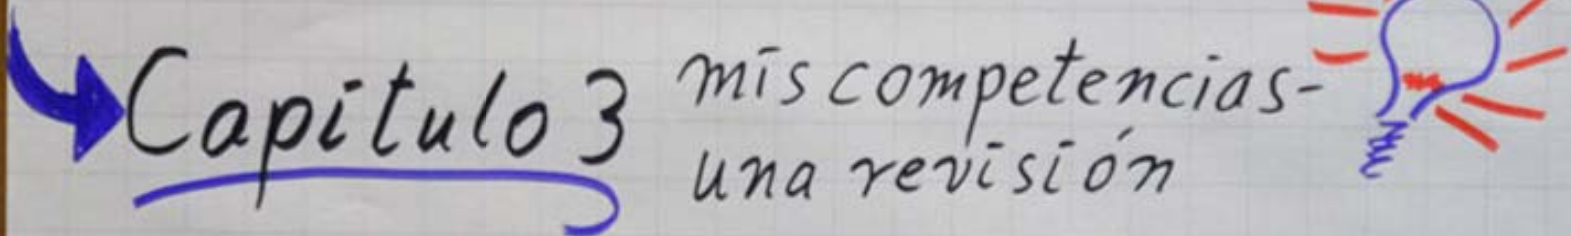 Capítulo 3
mis competencias-
una revisión